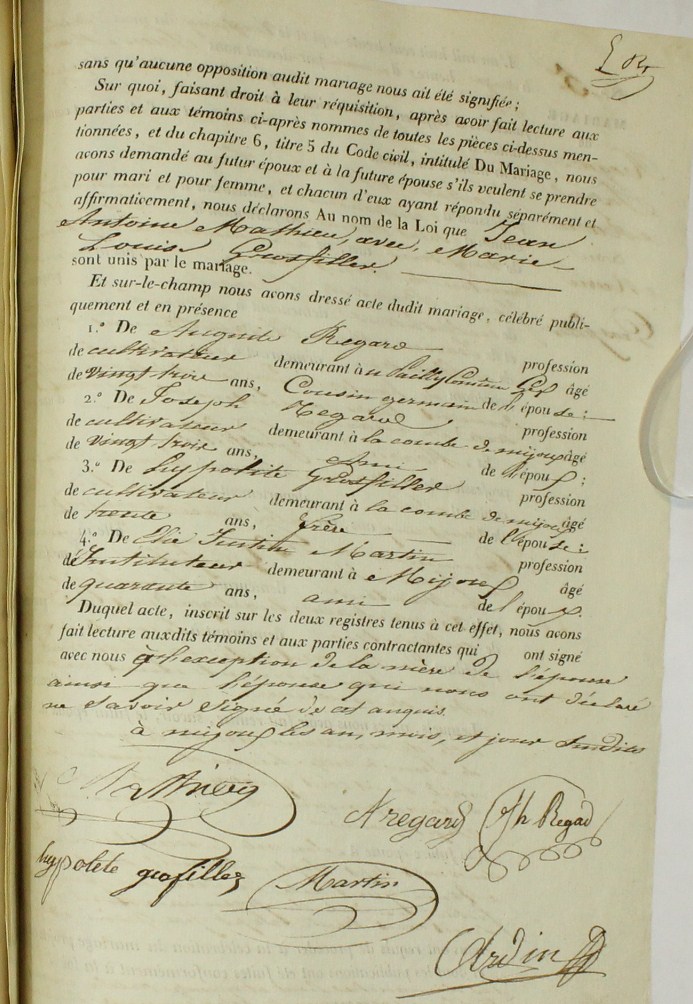 sans qu'aucune opposition audit mariage nous ait été signifiée ;
Sur quoi, faisant droit à leur réquisition, après avoir fait lecture aux
parties et aux témoins ci-après nommes de toutes les pièces ci-dessus men-
tionnées, et du chapitre 6, titre 5 du Code civil, intitulé Du Mariage, nous
avons demandé au futur époux et à la future épouse s'ils veulent se prendre
pour mari et pour femme, et chacun d'eux ayant répondu séparément et
affirmativement, nous déclarons Au nom de la Loi que Jean
Antoine Mathieu, avec, Marie
Louise Grosfiller.
sont unis par le mariage.
Et sur-le-champ nous avons dressé acte dudit mariage, célébré publi-
quement et en présence
1.º De Auguste Regard profession
de cultivateur demeurant à Gex âgé
de vingt trois ans, Cousin germain de l'épouse ;
2.º De Joseph Regard profession
de cultivateur demeurant à la combe de mijoux âgé
de vingt trois ans, ami de l'époux ;
3.º De hypolite Grosfiller profession
de cultivateur demeurant à la combe de mijoux âgé
de trente ans, frère de l'épouse ;
4.º De Elie Martin profession
d'Instituteur demeurant à Mijoux âgé
de quarante ans, ami de l'époux.
Duquel acte, inscrit sur les deux registres tenus à cet effet, nous avons
fait lecture auxdits témoins et aux parties contractantes qui ont signé
avec nous à l'exception de la mère de l'épouse
ainsi que l'épouse qui nous ont déclaré
ne savoir signé de cet enquis.
à mijoux les an, mois, et jour susdits
Mathieu
A regard Jh Regad
hypolite grosfiller Martin